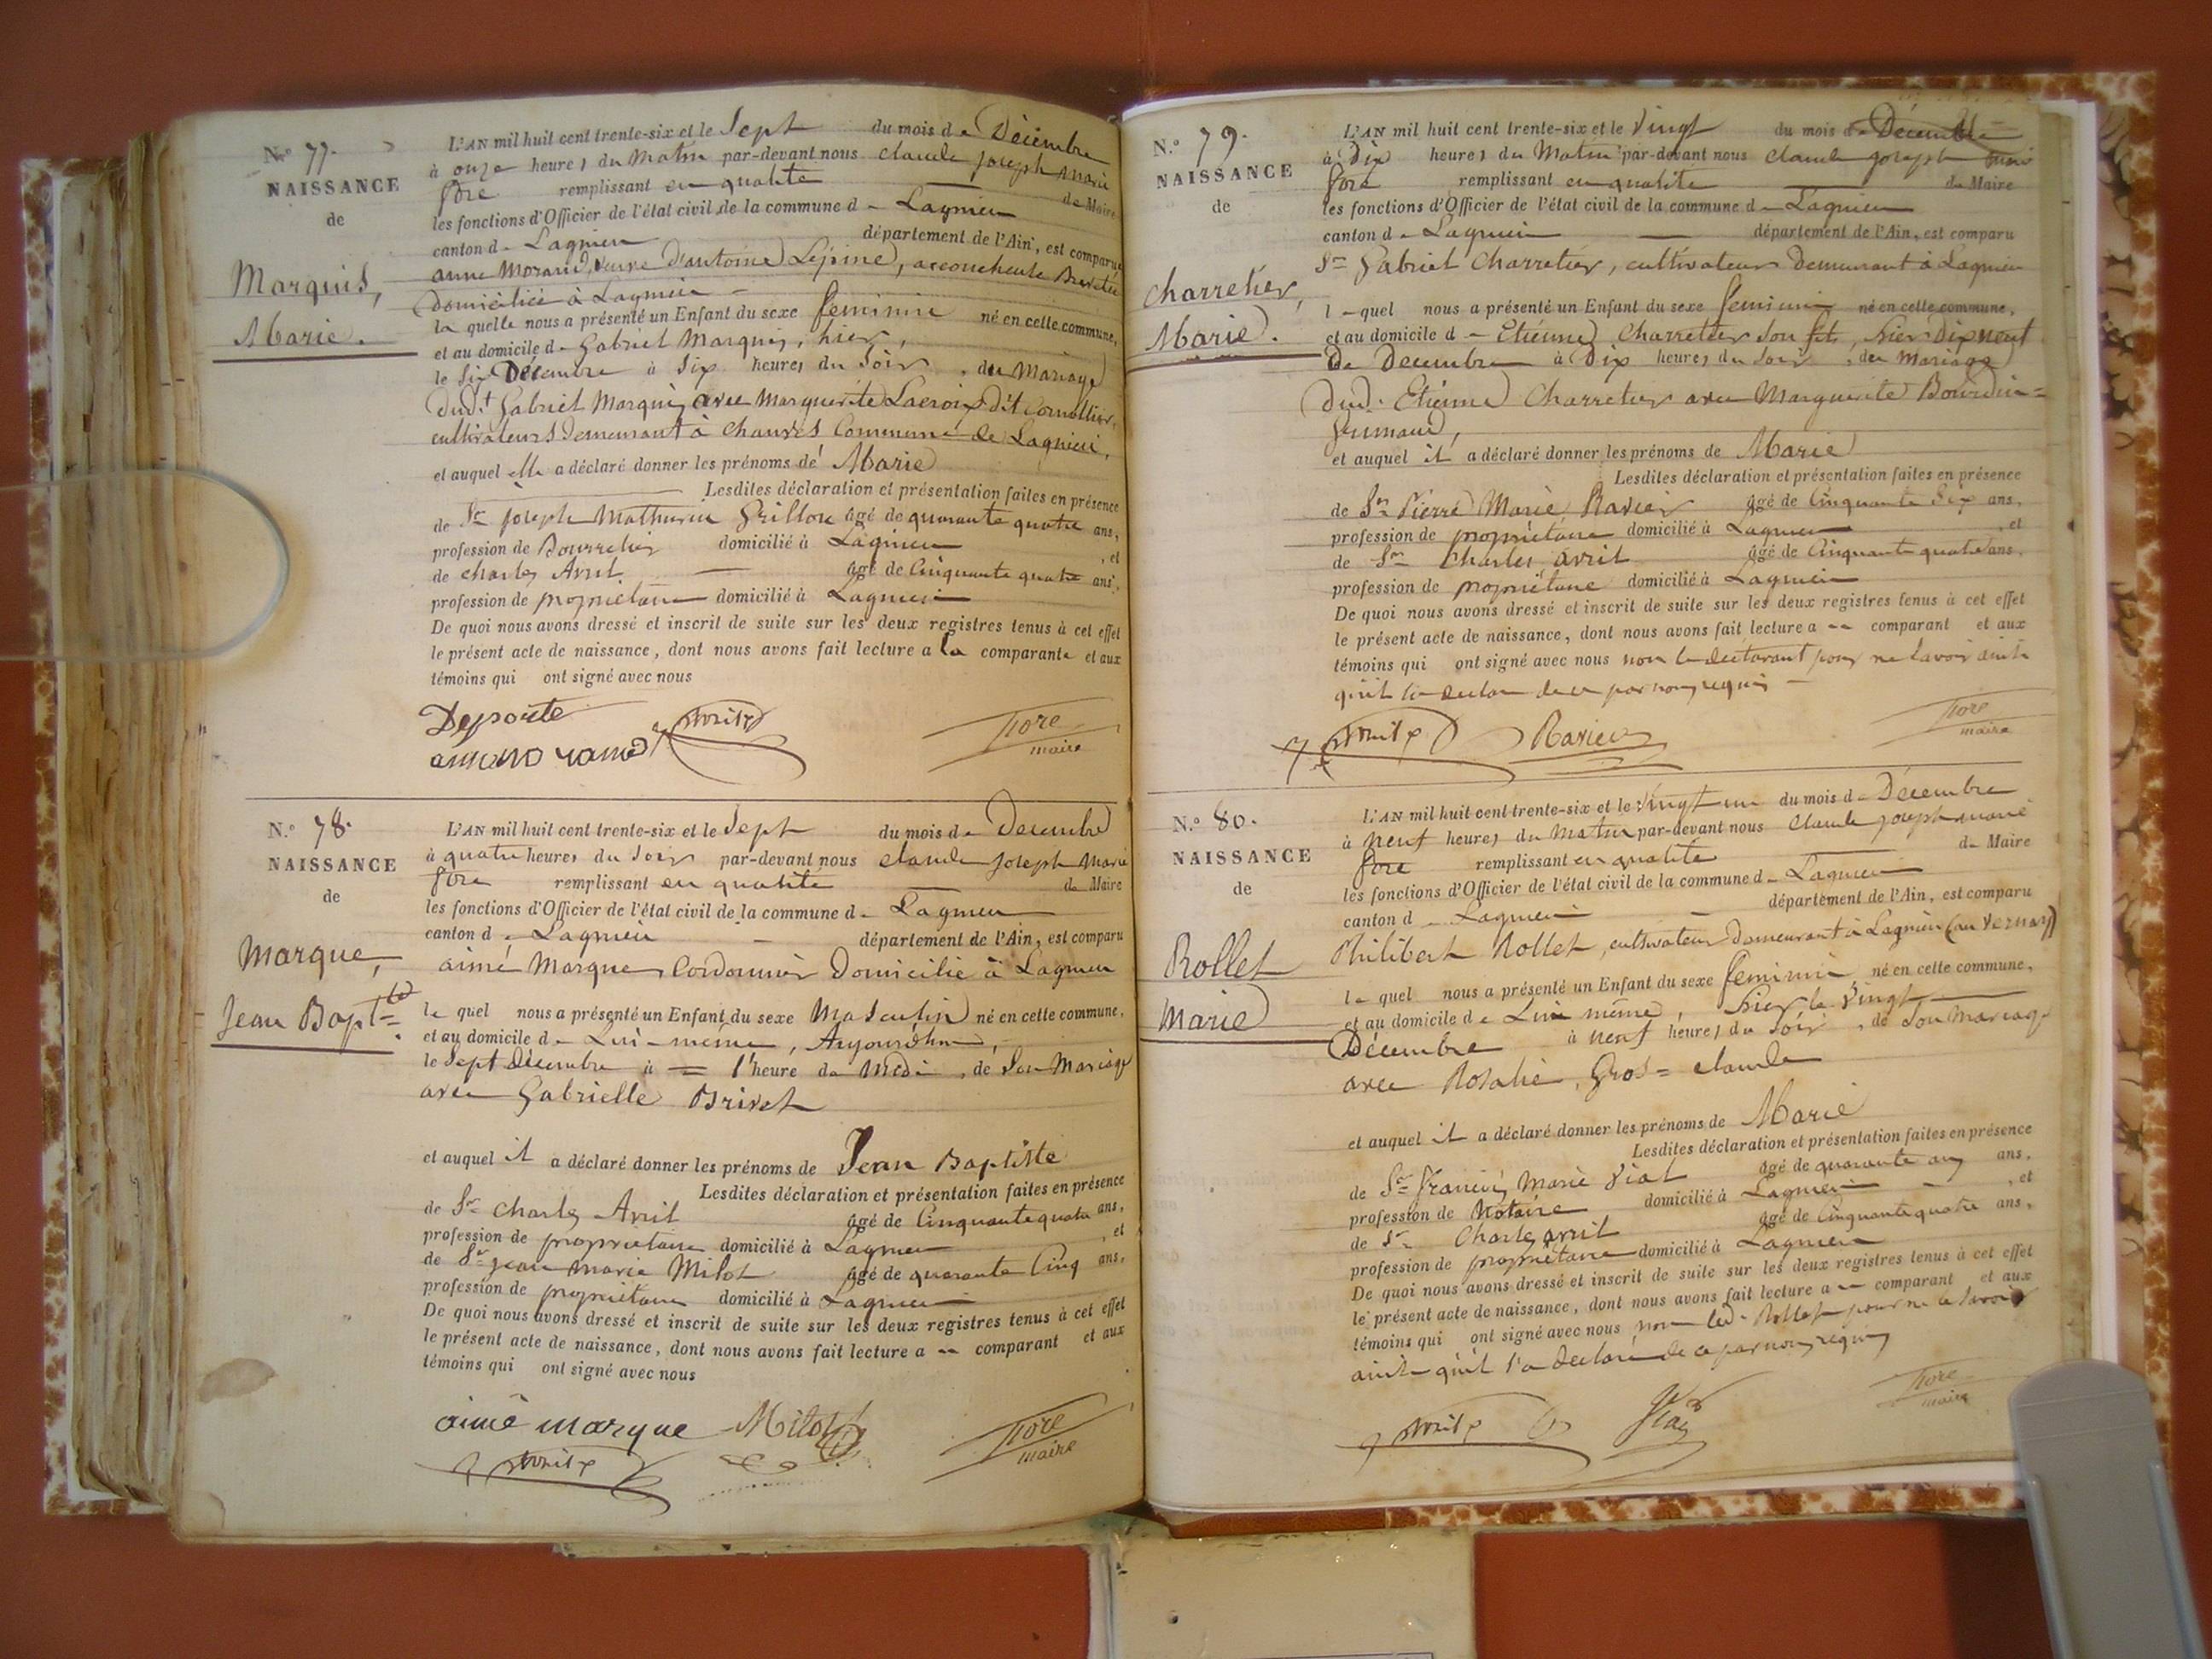 N.° 77.
NAISSANCE
de
Marquis,
Marie.
L'AN mil huit cent trente-six et le Sept du mois de Décembre
à onze heures du Matin par-devant nous claude joseph marie
fore remplissant en qualité de Maire
les fonctions d'Officier de l'état civil de la commune de Lagnieu
canton de Lagnieu département de l'Ain, est comparue
anne Morand, veuve d'antoine Lépine, accoucheuse Brevetée
domiciliée à Lagnieu
la quelle nous a présenté un Enfant du sexe feminin né en cette commune,
et au domicile de Gabriel Marquis, hier,
le Six Décembre à Six heures du Soir, du Mariage
dud.t Gabriel Marquis avec Marguerite Lacroix dit Cornollier,
cultivateurs demeurant à Chanves Commune de Lagnieu,
et auquel elle a déclaré donner les prénoms de Marie
Lesdites déclaration et présentation faites en présence
de Sr joseph Mathurin Grillon âgé de quarante quatre ans,
profession de Bourrelier domicilié à Lagnieu, et
de charles Avril âgé de Cinquante quatre ans,
profession de propriétaire domicilié à Lagnieu
De quoi nous avons dressé et inscrit de suite sur les deux registres tenus à cet effet
le présent acte de naissance, dont nous avons fait lecture a la comparante et aux
témoins qui ont signé avec nous
Avril
fore
maire
N.° 78.
NAISSANCE
de
Marque,
Jean Bapt.te
L'AN mil huit cent trente-six et le Sept du mois de Decembre
à quatre heures du Soir par-devant nous claude joseph Marie
fore remplissant en qualité de Maire
les fonctions d'Officier de l'état civil de la commune de Lagnieu
canton de Lagnieu département de l'Ain, est comparu
aimé Marque, Cordonnier domicilié à Lagnieu
le quel nous a présenté un Enfant du sexe Masculin né en cette commune,
et au domicile de Lui-même, Aujourd'hui,
le Sept décembre à = l'heure de Midi, de Son Mariage
avec Gabrielle Brivet
et auquel il a déclaré donner les prénoms de Jean Baptiste
Lesdites déclaration et présentation faites en présence
de Sr Charles Avril âgé de Cinquante quatre ans,
profession de propriétaire domicilié à Lagnieu, et
de Sr jean marie Milot âgé de quarante Cinq ans,
profession de propriétaire domicilié à Lagnieu
De quoi nous avons dressé et inscrit de suite sur les deux registres tenus à cet effet
le présent acte de naissance, dont nous avons fait lecture a comparant et aux
témoins qui ont signé avec nous
aimé marque Milot
Avril
fore
maire
N.° 79.
NAISSANCE
de
Charretier,
Marie.
L'AN mil huit cent trente-six et le Vingt du mois de Décembre
à Dix heures du Matin par-devant nous claude joseph marie
fore remplissant en qualité de Maire
les fonctions d'Officier de l'état civil de la commune de Lagnieu
canton de Lagnieu département de l'Ain, est comparu
Sr Gabriel Charretier, cultivateur demeurant à Lagnieu
le quel nous a présenté un Enfant du sexe feminin né en cette commune,
et au domicile de Etienne Charretier Son fils, hier dix neuf
de Decembre à Dix heures du Soir, du Mariage
dud. Etienne Charretier avec Marguerite Bourdin=
Grumaud,
et auquel il a déclaré donner les prénoms de Marie
Lesdites déclaration et présentation faites en présence
de Sr Pierre Marie Ravier âgé de Cinquante Six ans,
profession de propriétaire domicilié à Lagnieu, et
de Sr Charles avril âgé de Cinquante quatre ans,
profession de propriétaire domicilié à Lagnieu
De quoi nous avons dressé et inscrit de suite sur les deux registres tenus à cet effet
le présent acte de naissance, dont nous avons fait lecture a comparant et aux
témoins qui ont signé avec nous non le declarant pour ne savoir ainsi
qu'il l'a déclaré de ce par nous requis
Avril Ravier
fore
maire
N.° 80.
NAISSANCE
de
Rollet
Marie
L'AN mil huit cent trente-six et le Vingt un du mois de Décembre
à neuf heures du Matin par-devant nous claude joseph marie
fore remplissant en qualité de Maire
les fonctions d'Officier de l'état civil de la commune de Lagnieu
canton de Lagnieu département de l'Ain, est comparu
Philibert Rollet, cultivateur demeurant à Lagnieu (au Vernay)
le quel nous a présenté un Enfant du sexe feminin né en cette commune,
et au domicile de Lui même, hier le Vingt
Décembre à neuf heures du Soir, de Son mariage
avec Rosalie, Gros=claude
et auquel il a déclaré donner les prénoms de Marie
Lesdites déclaration et présentation faites en présence
de Sr francois Marie Vial âgé de quarante ans,
profession de Notaire domicilié à Lagnieu, et
de Sr Charles avril âgé de Cinquante quatre ans,
profession de propriétaire domicilié à Lagnieu
De quoi nous avons dressé et inscrit de suite sur les deux registres tenus à cet effet
le présent acte de naissance, dont nous avons fait lecture a comparant et aux
témoins qui ont signé avec nous non led. Rollet pour ne le savoir
ainsi qu'il l'a declaré de ce par nous requis
Avril Vial
fore
maire